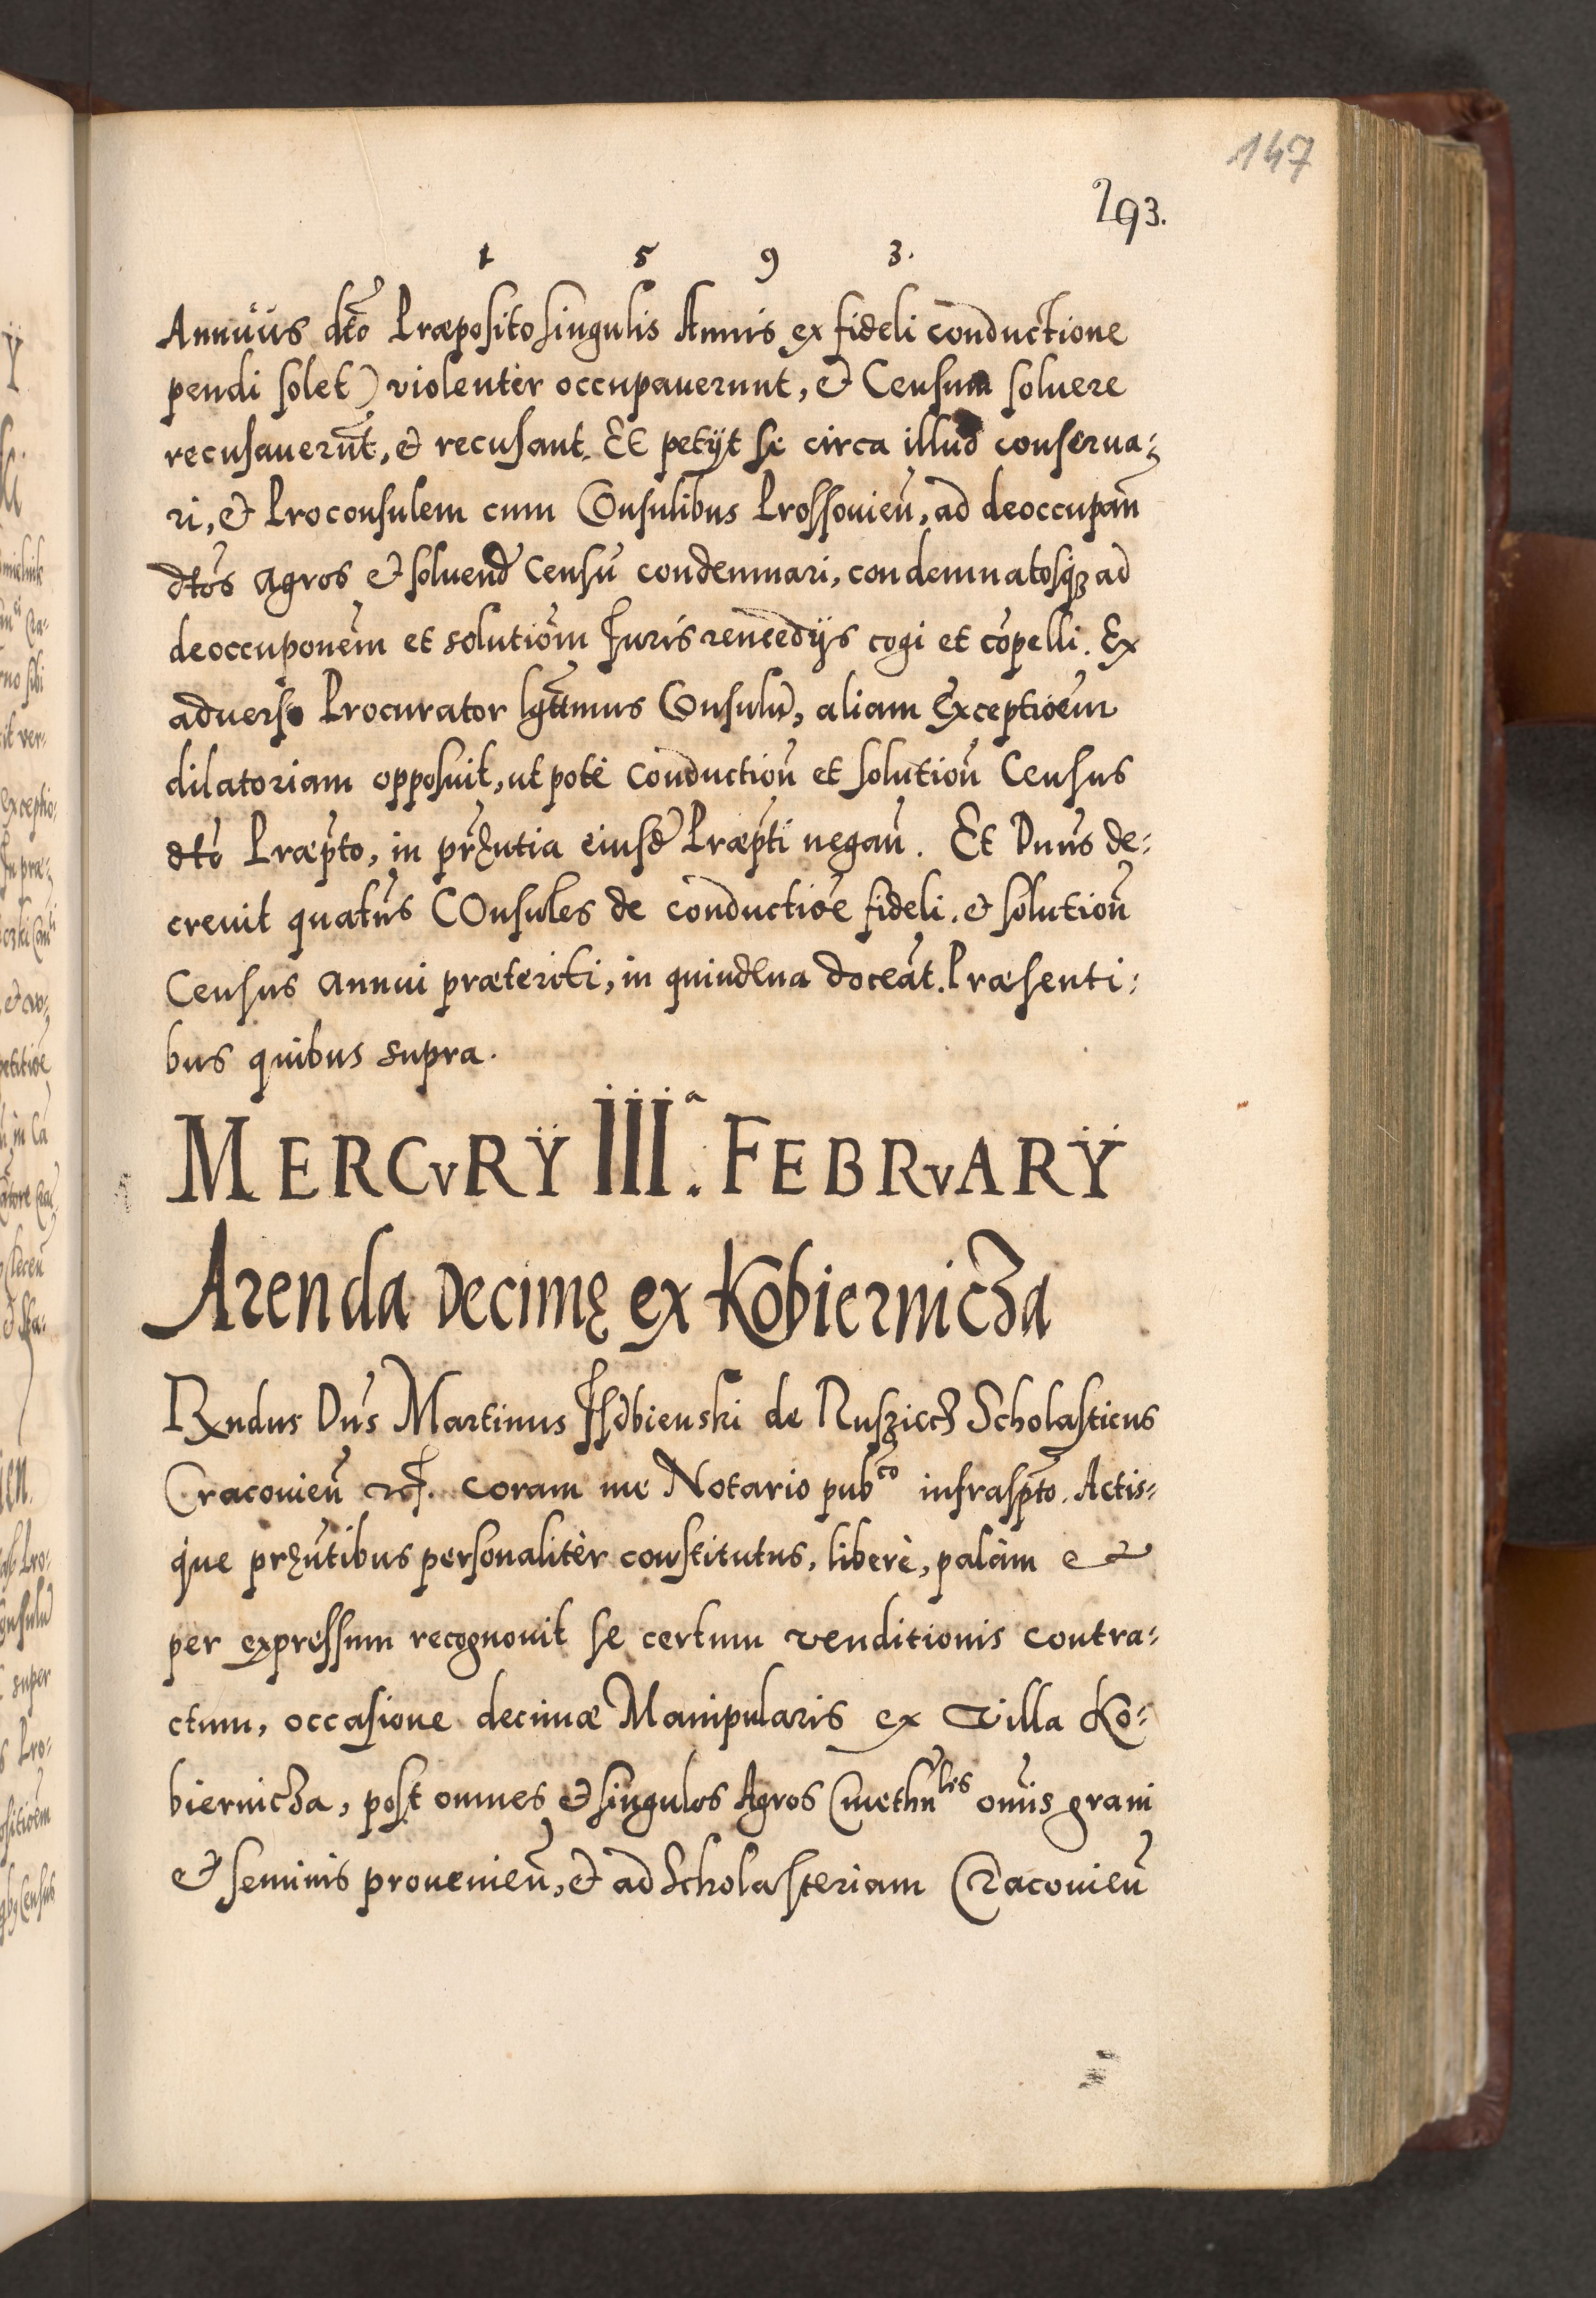 147
293.
1 5 9 3.
Annuus dto Præposito singulis Annis ex fideli conductione
pendi solet) violenter occupauerunt, et Censum soluere
recusauerut, et recusant. Et petijt se circa illud conserua-
ri, et Proconsulem cum Consulibus Prossouien, ad deoccupan
dtos agros et soluend Censu condemnari, condemnatosq3 ad
deoccuponem et solutiom Iuris remedijs cogi et copelli. Ex
aduerso Procurator lgttmus Consulu, aliam Exceptioem
dilatoriam opposuit, ut pote conduction et solution Census
dto Præpto, in prntia eiusd Præpti negan. Et Dnus de-
creuit quatus COnsules de conductioe fideli. et solution
Census annui præteriti, in quindena doceat. Præsenti-
bus quibus supra.
MERCVRŸ III.ª FEBRVARŸ
Arenda Decimę ex Kobiernicza
Rndus Dns Martinus Isdbienski de Ruszicz Scholasticus
Cracouien etc. coram me Notario pubco infraspto. Actis-
que prntibus personaliter constitutus, liberè, palàm et
per expressum recognouit se certum venditionis contra-
ctum, occasione decimæ Manipularis ex Villa Ko-
biernicza, post omnes et singulos Agros Cmethnles omis grani
et seminis prouenien, et ad Scholasteriam Cracouien